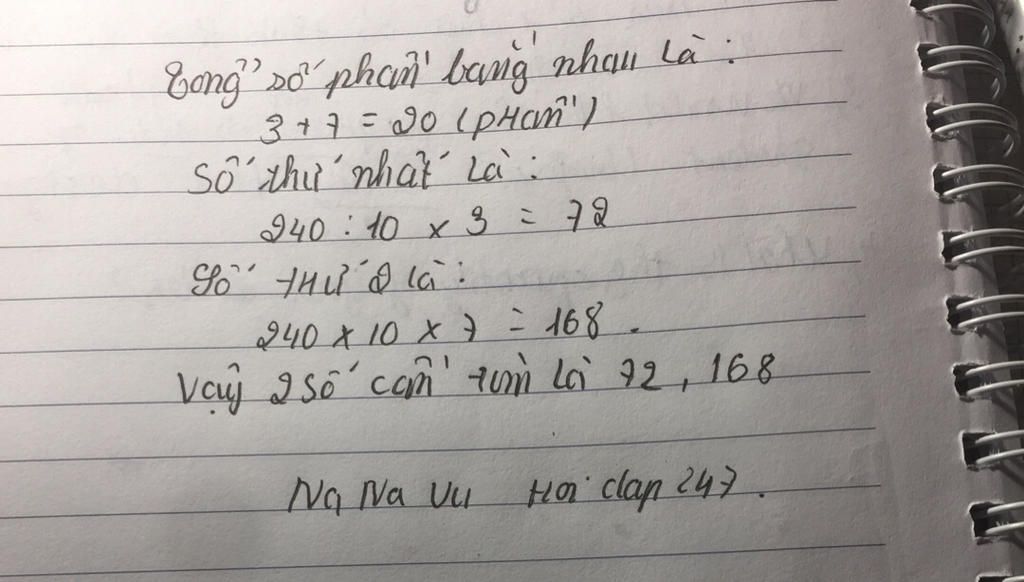 Tổng số phần bằng nhau là:
3 + 7 = 20 (pHần)
Số thứ nhất là:
240 : 10 x 3 = 72
Số tHứ 2 là:
240 x 10 x 7 = 168.
Vậy 2 số cần tìm là 72, 168
Na Na Vu Hoi dap 247.